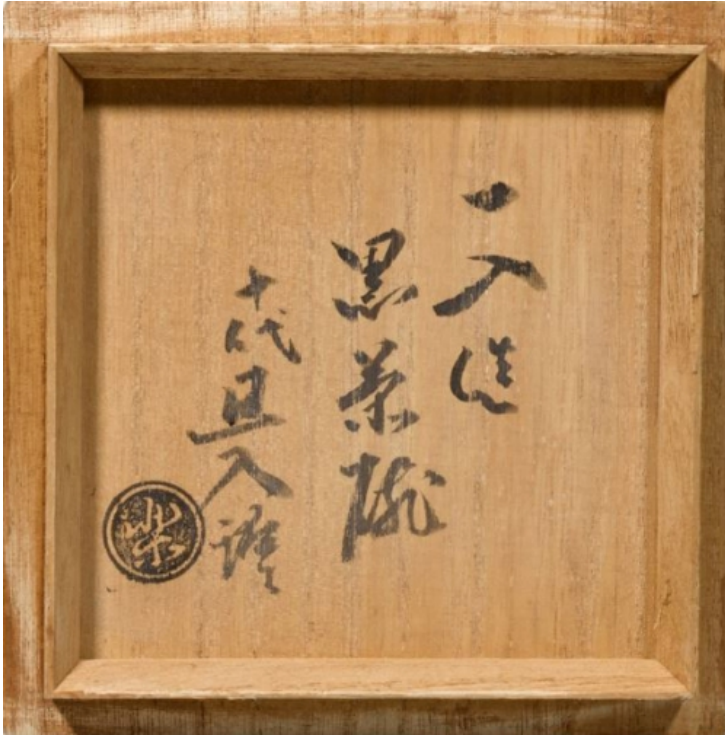 一入造
黒茶碗
十代旦入證
樂